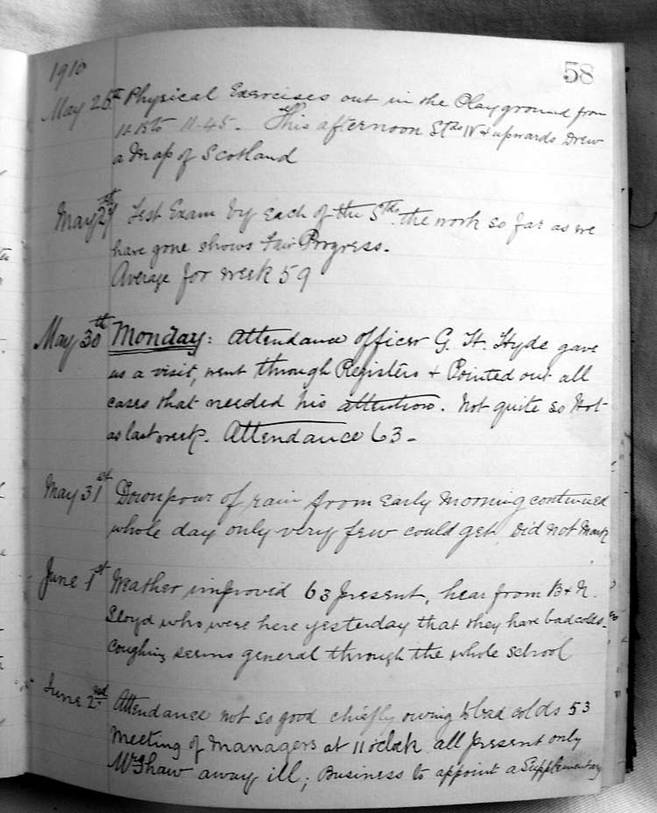 1910
58
May 26th Physical Exercises out in the Playground from
11-15 to 11-45. This afternoon Stds IV & upwards Drew
a Map of Scotland
May 27 Test Exam by each of the Sds. the work so far as we
have gone shows Fair Progress.
Average for week 59
May 30th Monday: Attendance officer G. H. Hyde gave
us a visit, went through Registers & Pointed out all
cases that needed his attention. Not quite so Hot
as last week. Attendance 63-
May 31st Downpour of rain from early morning continued
whole day only very few could get. Did not Mark
June 1st Weather improved 63 present, hear from B & N.
Lloyd who were here yesterday that they have bad colds.
Coughing seems general through the whole school
June 2nd Attendance not so good chiefly owing to bad colds 53
Meeting of Managers at 11 o'clock all present only
Mr Shaw away ill; Business to appoint a Supplementary